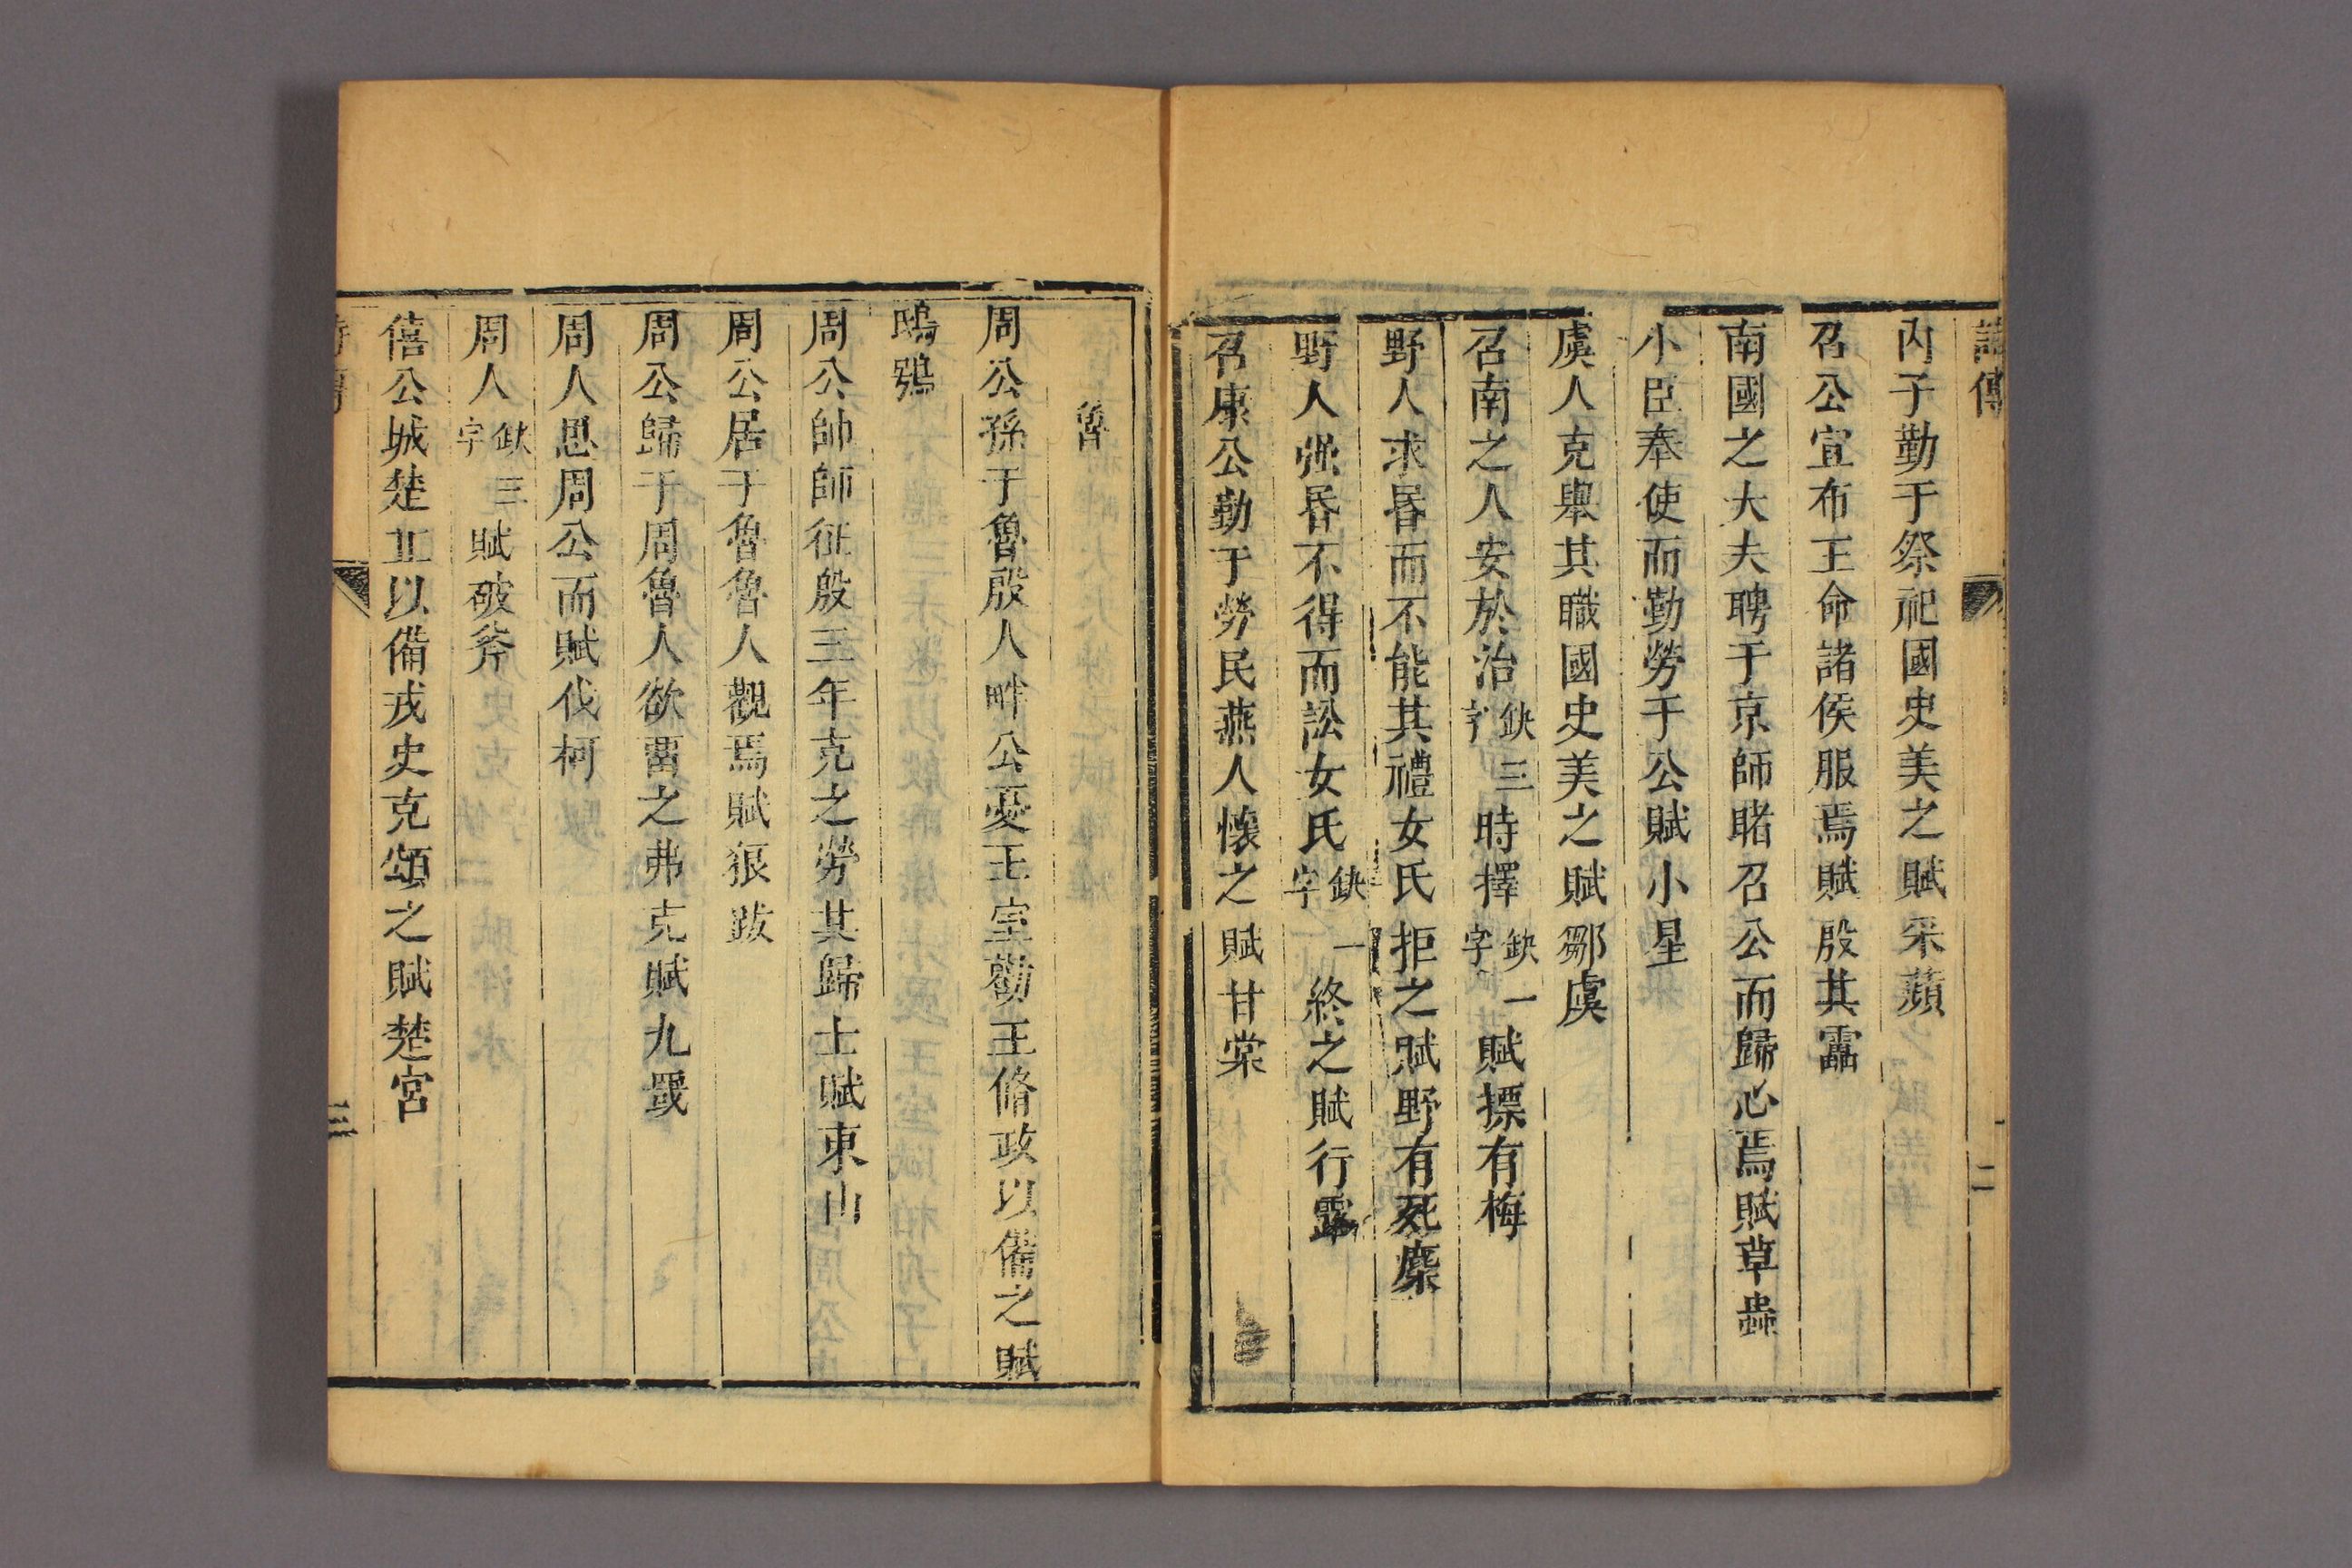 詩傳 二
内子勤于祭祀國史美之賦采蘋
召公宣布王命諸侯服焉賦殷其靁
南國之大夫聘于京師睹召公而歸心焉賦草蟲
小臣奉使而勤勞于公賦小星
虞人克舉其職國史美之賦鄒虞
召南之人安於治缺三字時擇缺一字賦摽有梅
野人求昏而不能其禮女氏拒之賦野有死麇
野人强昏不得而訟女氏缺一字終之賦行露
召康公勤于勞民燕人懷之賦甘棠
魯
周公孫于魯殷人畔公憂王室勸王脩政以備之賦
鴟鴞
周公帥師征殷三年克之勞其歸士賦東山
周公居于魯魯人觀焉賦狼跋
周公歸于周魯人欲畱之弗克賦九罭
周人思周公而賦伐柯
周人缺三字賦破斧
僖公城楚丠以備戎史克頌之賦楚宮
詩傳 三